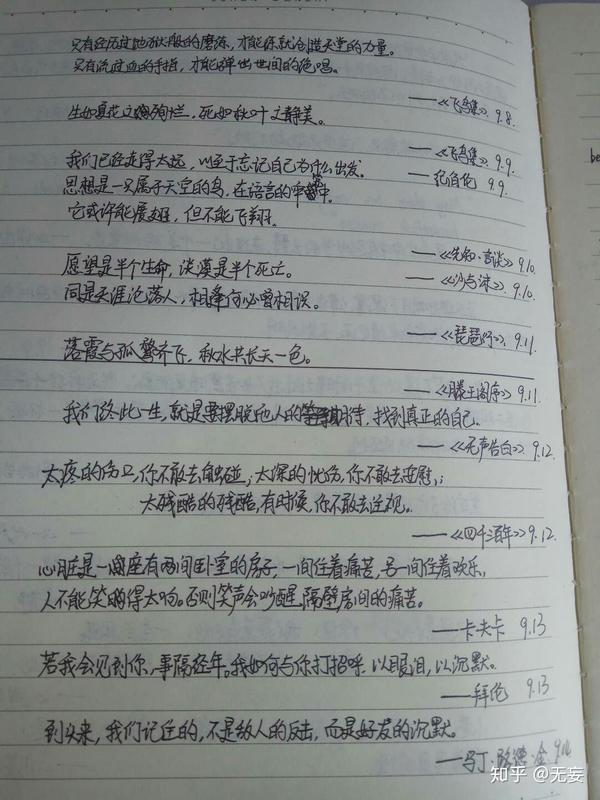 只有经历过地狱般的磨练，才能练就创造天堂的力量。
只有流过血的手指，才能弹出世间的绝唱。
——《飞鸟集》9.8.
生如夏花之绚烂，死如秋叶之静美。
——《飞鸟集》9.9.
我们已经走得太远，以至于忘记自己为什么出发。
——纪伯伦 9.9.
思想是一只属于天空的鸟，在语言的牢笼中，
它或许能展翅，但不能飞翔。
——《先知·言谈》9.10.
愿望是半个生命，淡漠是半个死亡。
——《沙与沫》9.10.
同是天涯沦落人，相逢何必曾相识。
——《琵琶行》9.11.
落霞与孤鹜齐飞，秋水共长天一色。
——《滕王阁序》9.11.
我们终此一生，就是要摆脱他人的期待，找到真正的自己。
——《无声告白》9.12.
太疼的伤口，你不敢去触碰；太深的忧伤，你不敢去安慰；
太残酷的残酷，有时候，你不敢去注视。
——《四千酒年》9.12.
心脏是一座有两间卧室的房子，一间住着痛苦，另一间住着欢乐，
人不能笑得太响。否则笑声会吵醒隔壁房间的痛苦。
——卡夫卡 9.13
若我会见到你，事隔经年。我如何与你打招呼，以眼泪，以沉默。
——拜伦 9.13
到头来，我们记住的，不是敌人的反击，而是好友的沉默。
——马丁·路德·金 9.14
be
知乎 @无妄